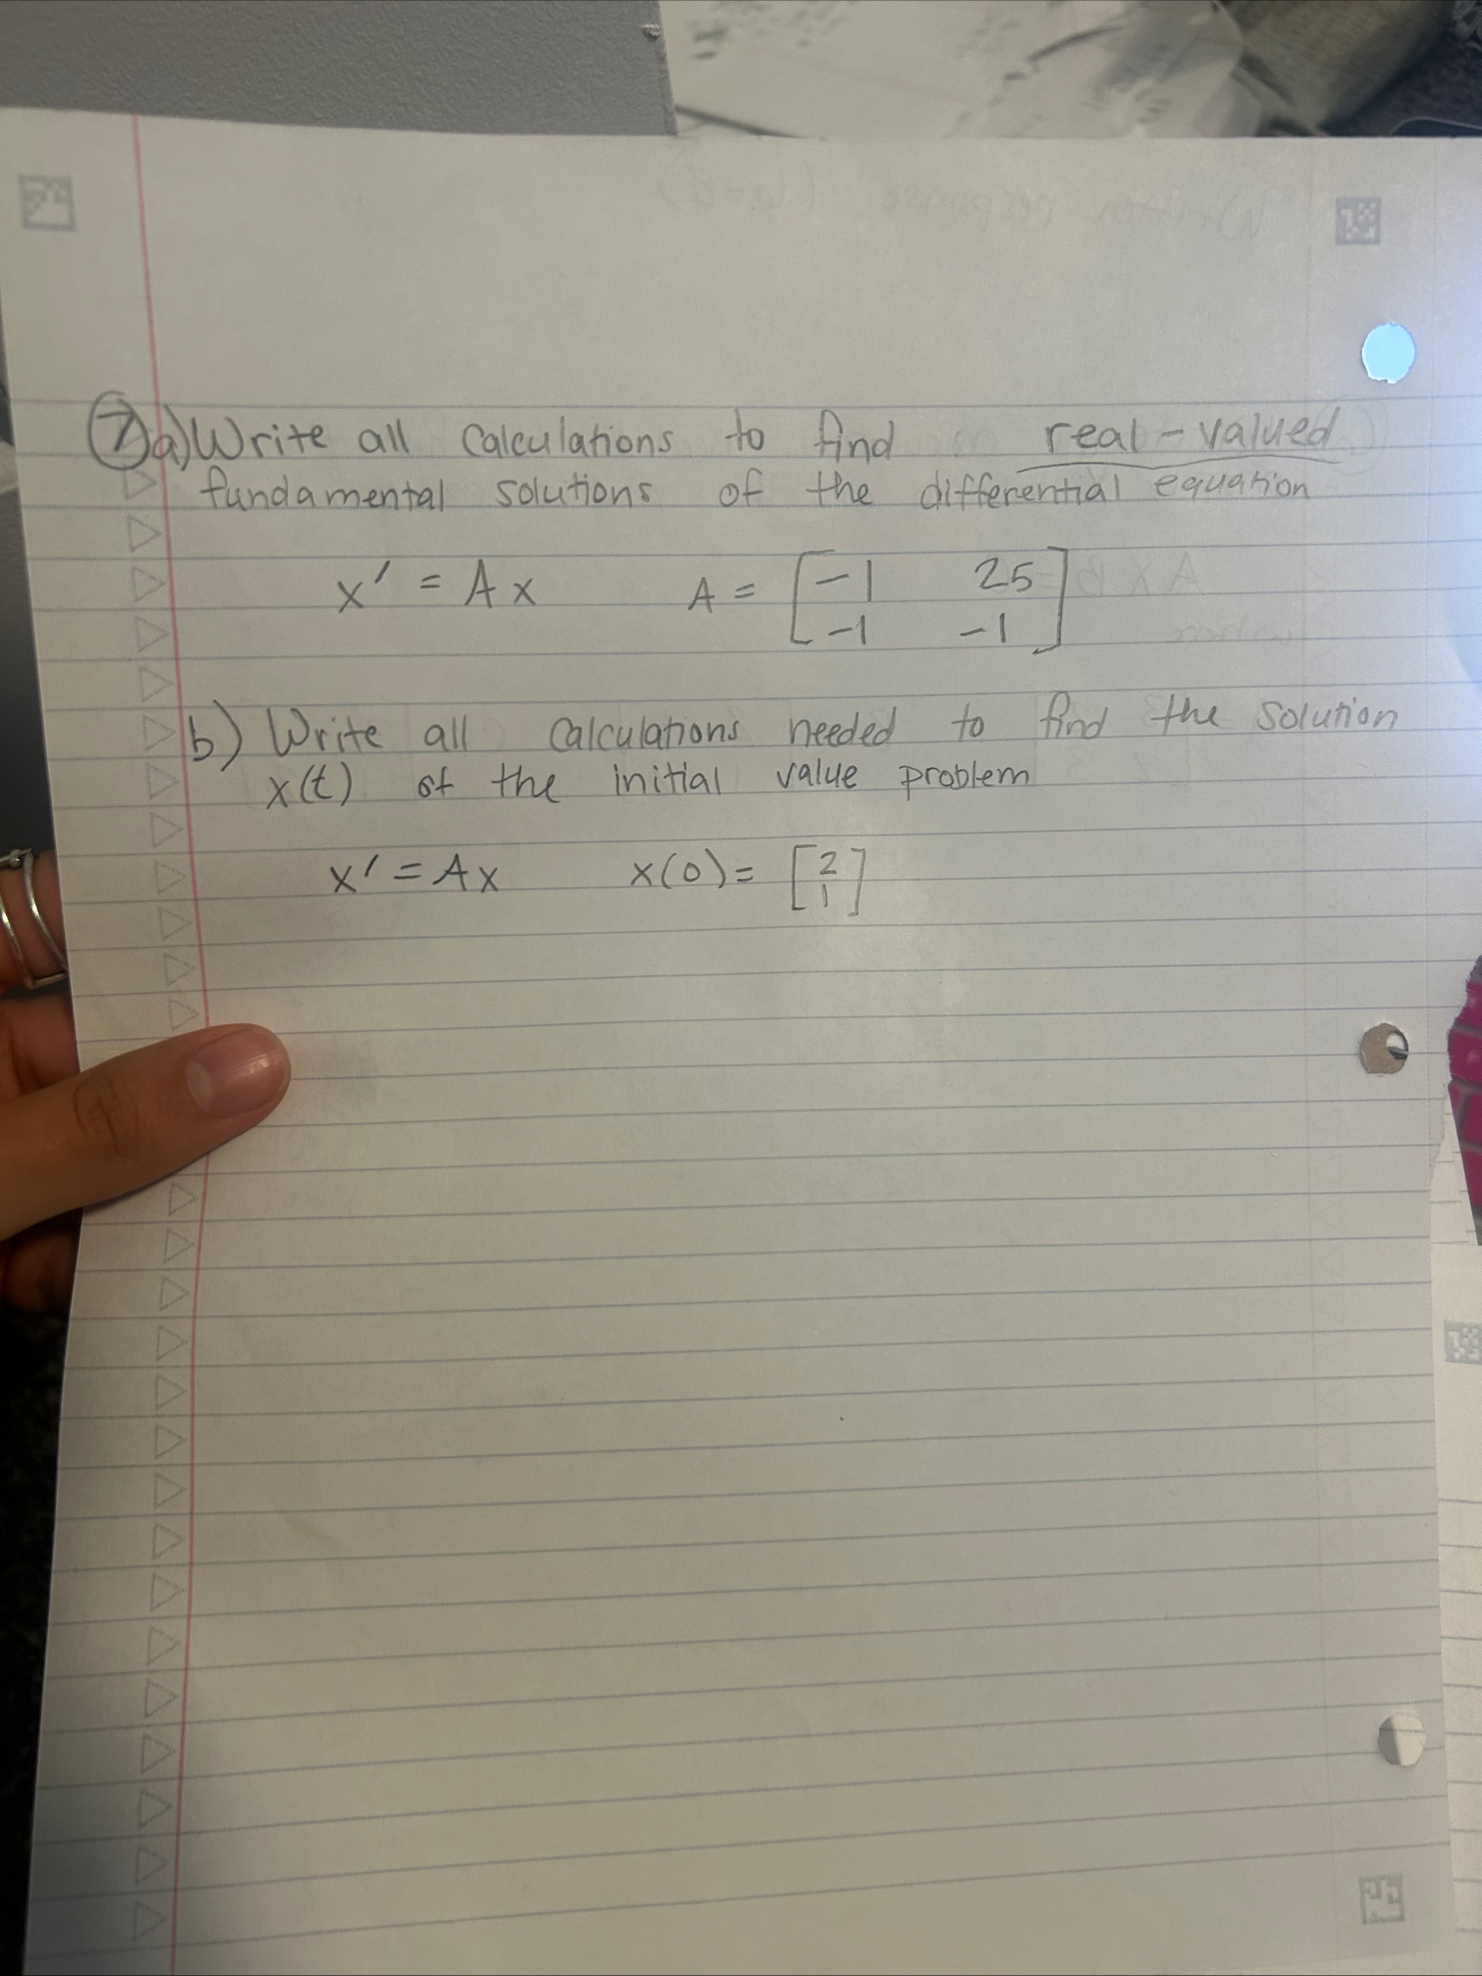 7 a) Write all calculations to find real-valued
fundamental solutions of the differential equation
x' = Ax A = [-1 25
-1 -1]
b) Write all calculations needed to find the solution
x(t) of the initial value problem
x' = Ax x(0) = [2
1]